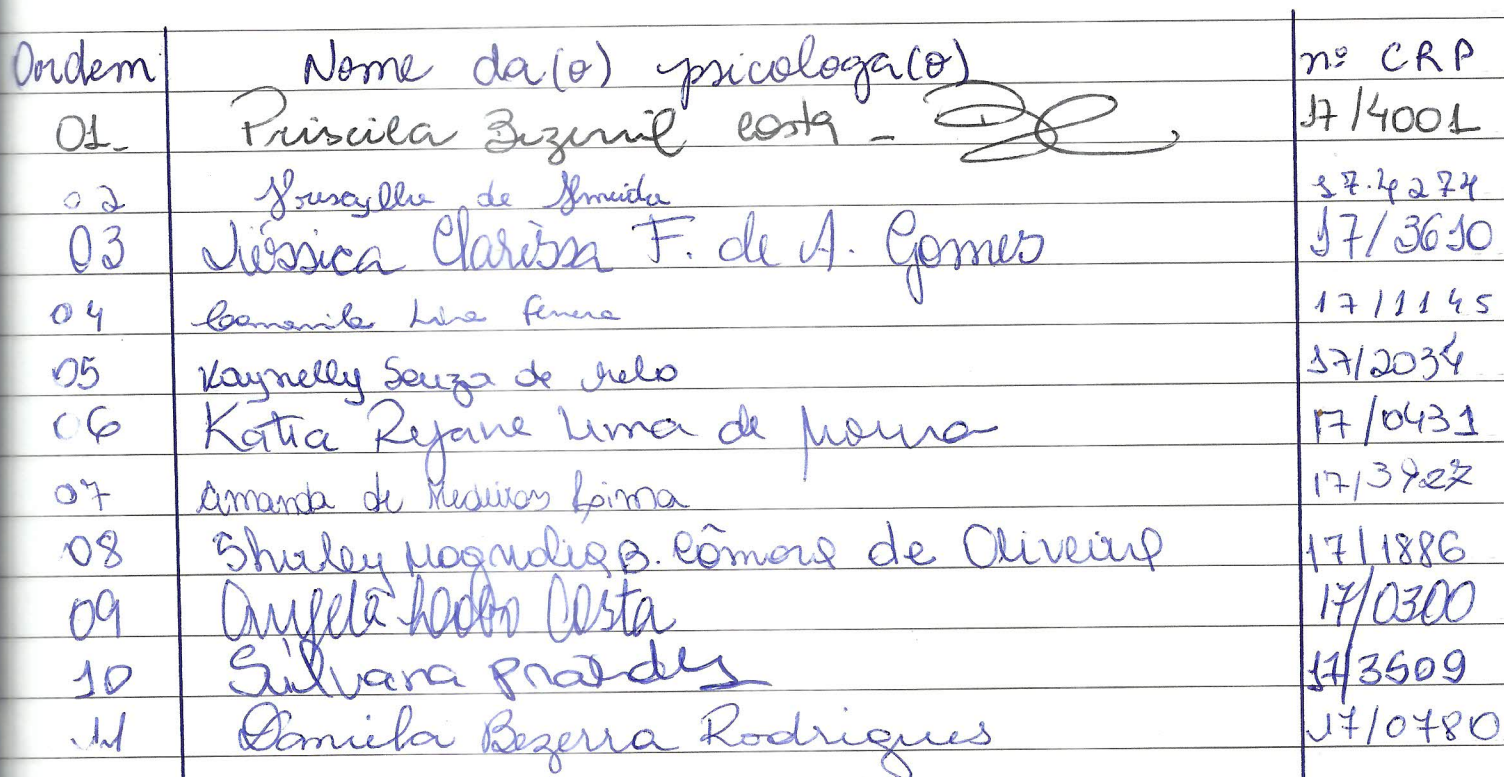 Ordem Nome da(o) psicologa(o) nº CRP
01- Priscila Bizerril Costa - 17/4001
02 de Almeida 17.4274
03 Jéssica Clarissa F. de A. Gomes 17/3610
04 Lira 17/1145
05 Kaynelly Souza de Melo 17/2034
06 Katia Rejane Lima de Moura 17/0431
07 Amanda de Medeiros Lima 17/3927
08 Shirley Magnolia B. Câmara de Oliveira 17/1886
09 Angela Costa 17/0300
10 Silvana 17/3509
11 Daniela Bezerra Rodrigues 17/0780